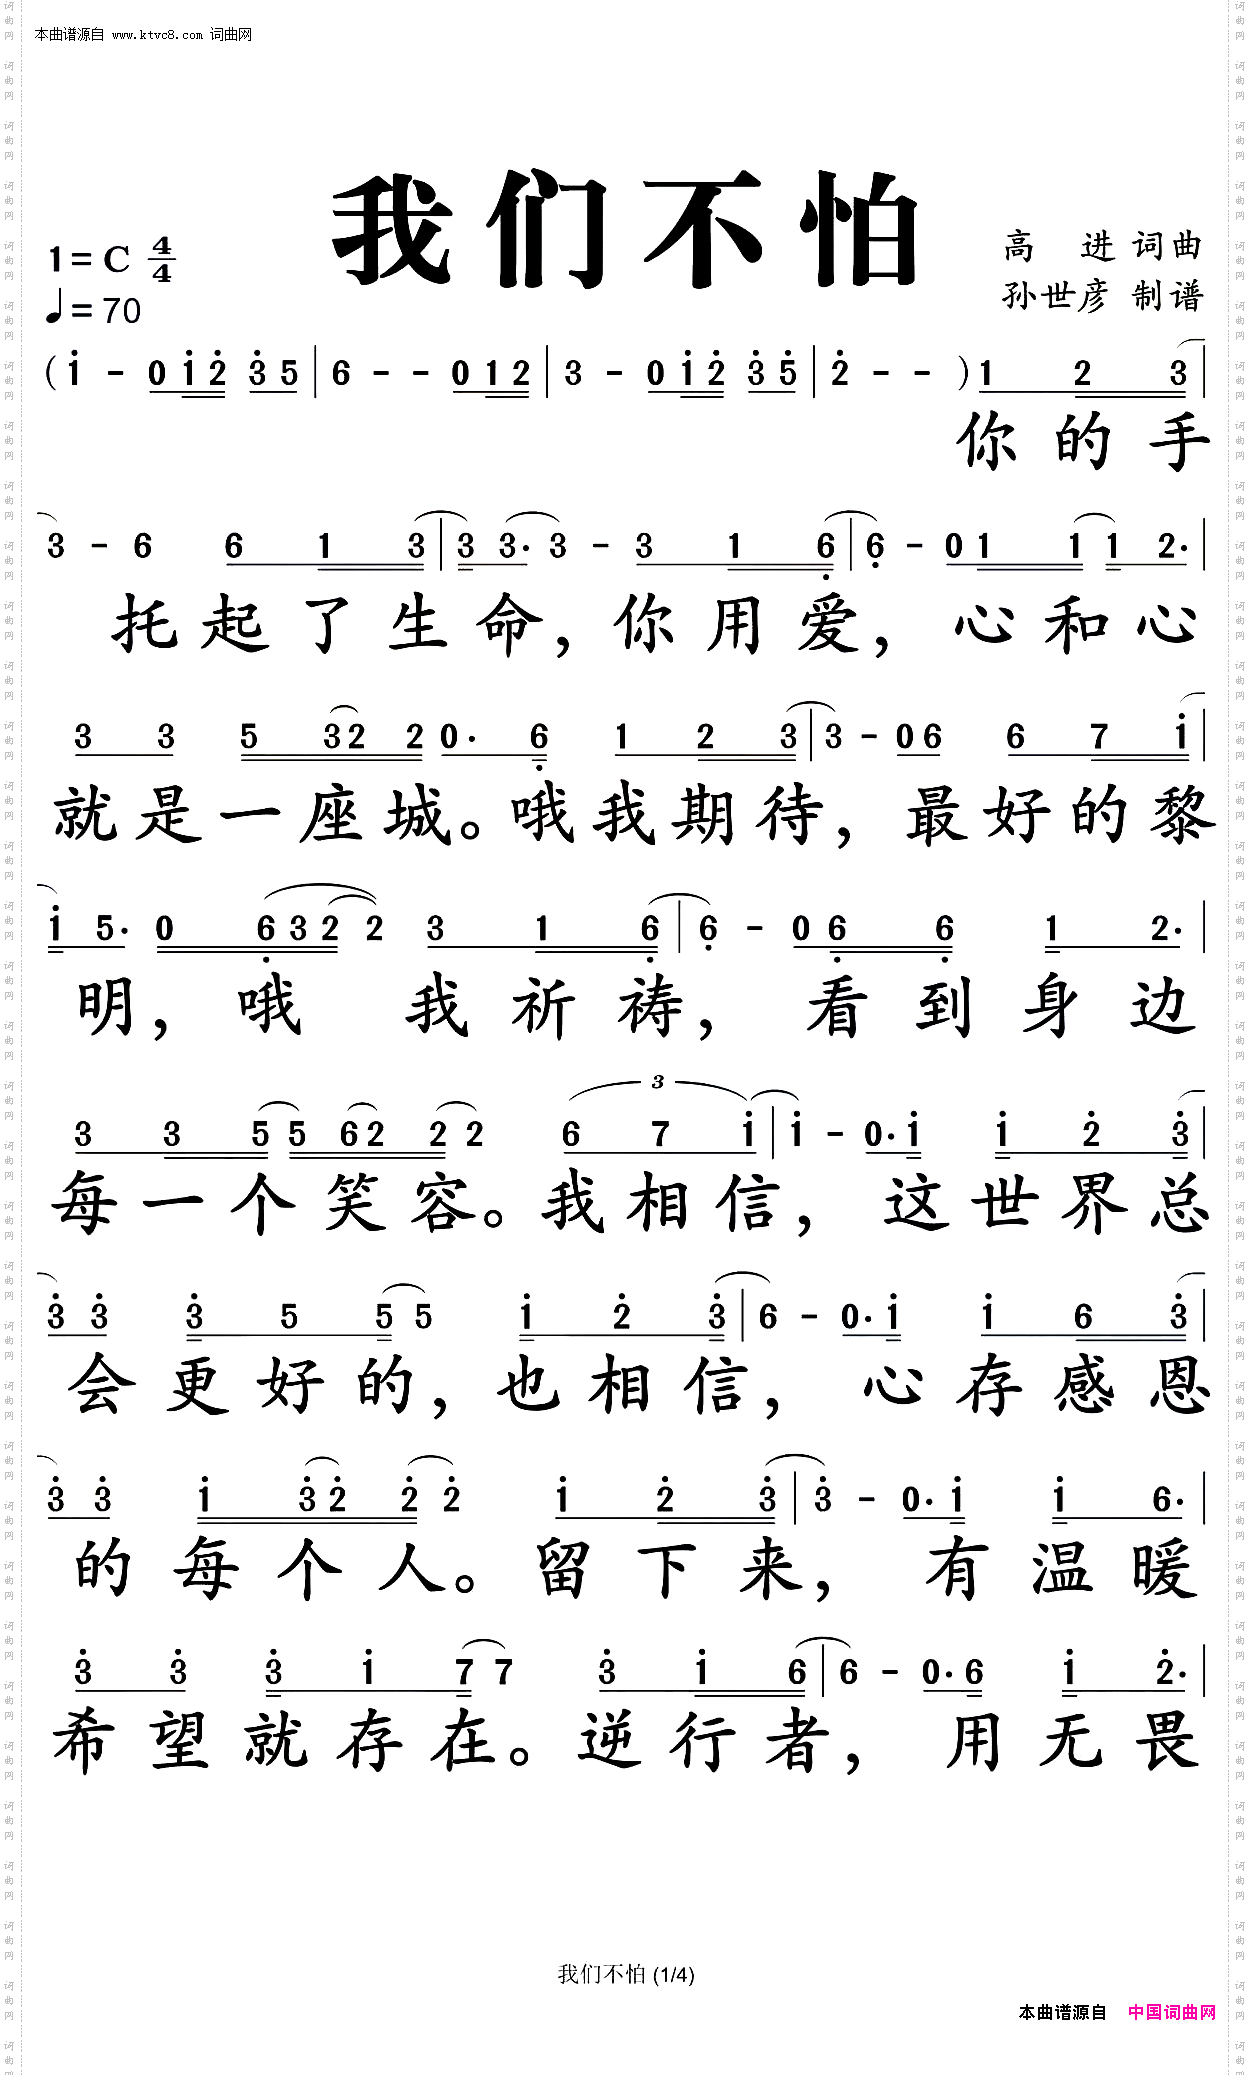 本曲谱源自 www.ktvc8.com 词曲网
我们不怕
1=C 4/4
高 进 词曲
♩=70
孙世彦 制谱
( i - 0 i 2 3 5 | 6 - - 0 1 2 | 3 - 0 i 2 3 5 | 2 - - ) 1 2 3 |
你的手
3 - 6 6 1 3 | 3 3· 3 - 3 1 6 | 6 - 0 1 1 1 2· |
托起了生命，你用爱，心和心
3 3 5 3 2 2 0· 6 1 2 3 | 3 - 0 6 6 7 i |
就是一座城。哦我期待，最好的黎
i 5· 0 6 3 2 2 3 1 6 | 6 - 0 6 6 1 2· |
明，哦 我祈祷，看到身边
3
3 3 5 5 6 2 2 2 6 7 i | i - 0· i i 2 3 |
每一个笑容。我相信，这世界总
3 3 3 5 5 5 i 2 3 | 6 - 0· i i 6 3 |
会更好的，也相信，心存感恩
3 3 i 3 2 2 2 i 2 3 | 3 - 0· i i 6· |
的每个人。留下来，有温暖
3 3 3 i 7 7 3 i 6 | 6 - 0· 6 i 2· |
希望就存在。逆行者，用无畏
我们不怕 (1/4)
本曲谱源自 中国词曲网